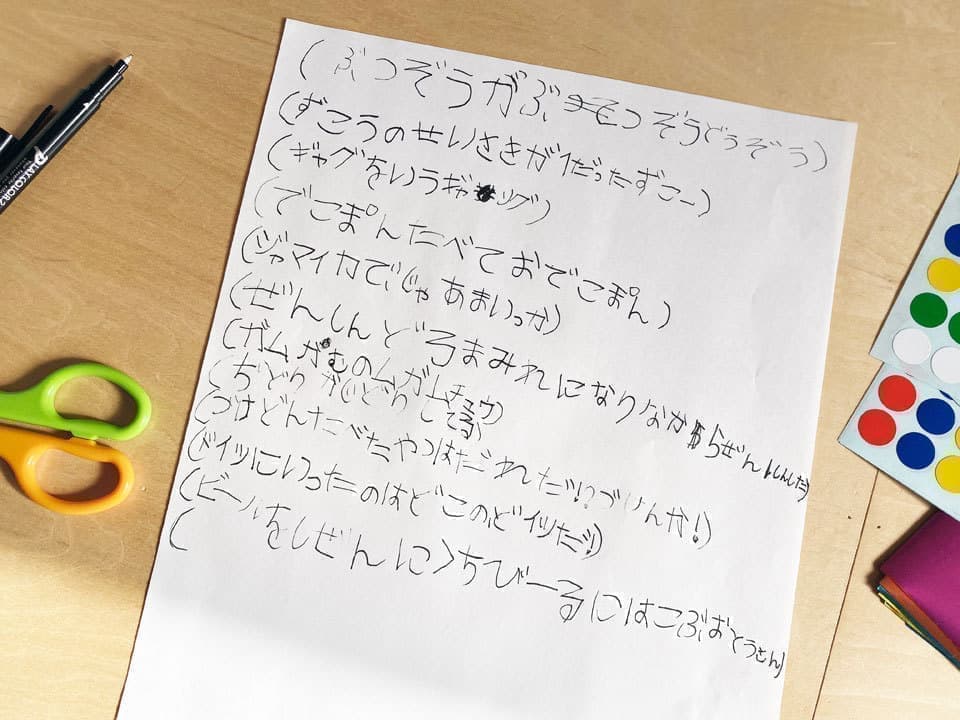 (ぶつぞうがぶつぞうどうぞう)
(ずこうのせいさきが1だったずこー)
(ギャグをいうギャッグ)
(でこぽんたべておでこぽん)
(ジャマイカでじゃあまいっか)
(ぜんしんどろまみれになりながらぜんしんした)
(ガムがむのムガムチュウ)
(ぢどりがじどりしてる)
(づけどんたべたやつはだれだ!?
(ドイツにいったのはどこのどイツだ!!)
(ビールをしぜんにくちびーるにはこぶおとうさん)
PLAYCOLOR2